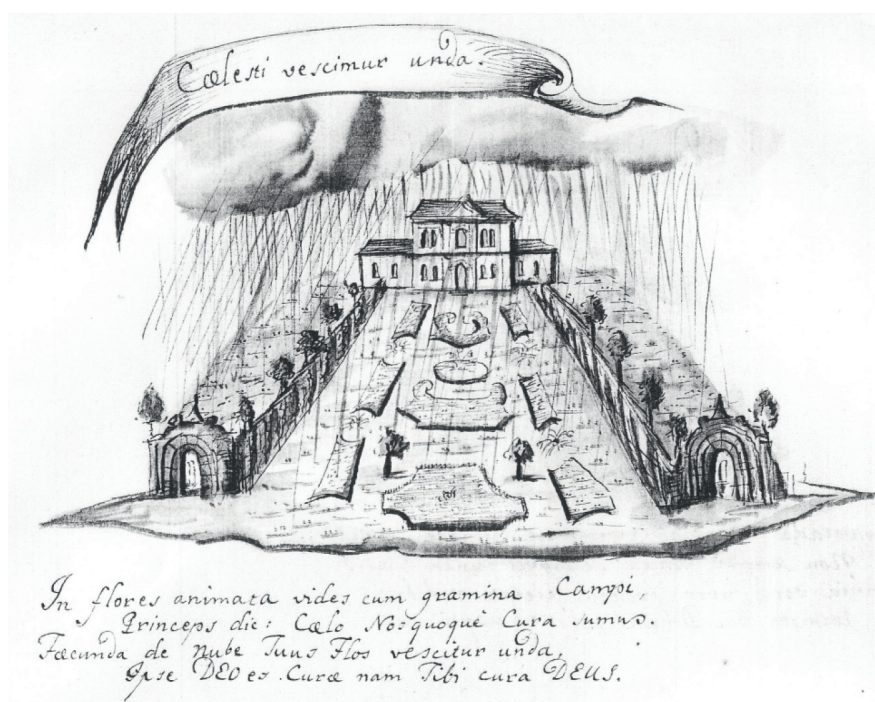 Cœlesti vescimur unda.
In flores animata vides cum gramina Campi,
Princeps dic: Cœlo Nos quoquè Cura sumus.
Fœcunda de nube Tuus Flos vescitur unda,
Ipse DEO es Curæ nam Tibi cura DEUS.